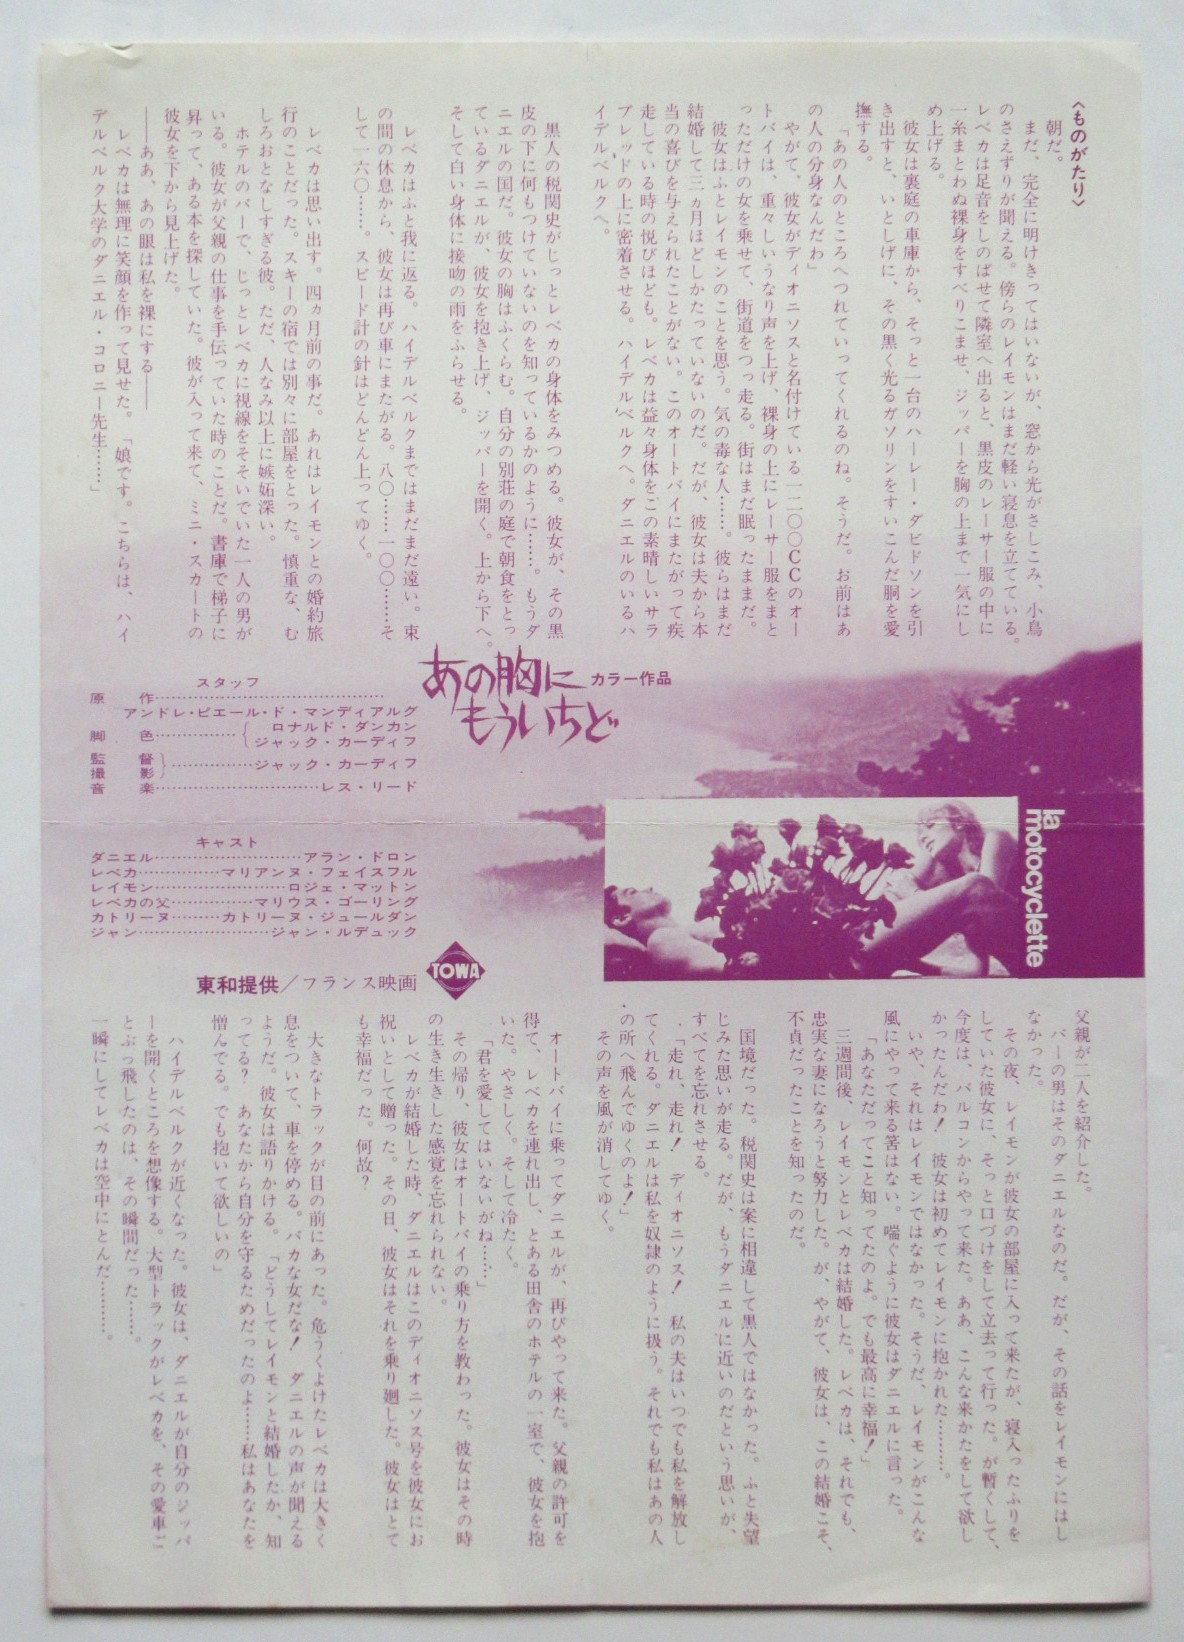 〈ものがたり〉
朝だ。
まだ、完全に明けきってはいないが、窓から光がさしこみ、小鳥
のさえずりが聞える。傍らのレイモンはまだ軽い寝息を立てている。
レベカは足音をしのばせて隣室へ出ると、黒皮のレーサー服の中に
一糸まとわぬ裸身をすべりこませ、ジッパーを胸の上まで一気にし
め上げる。
彼女は裏庭の車庫から、そっと一台のハーレー・ダビドソンを引
き出すと、いとしげに、その黒く光るガソリンをすいこんだ胴を愛
撫する。
「あの人のところへつれていってくれるのね。そうだ。お前はあ
の人の分身なんだわ」
やがて、彼女がディオニソスと名付けている一二〇〇CCのオー
トバイは、重々しいうなり声を上げ、裸身の上にレーサー服をまと
っただけの女を乗せて、街道をつっ走る。街はまだ眠ったままだ。
彼女はふとレイモンのことを思う。気の毒な人……。彼らはまだ
結婚して三ヵ月ほどしかたっていないのだ。だが、彼女は夫から本
当の喜びを与えられたことがない。このオートバイにまたがって疾
走している時の悦びほども。レベカは益々身体をこの素晴しいサラ
ブレッドの上に密着させる。ハイデルベルクへ。ダニエルのいるハ
イデルベルクへ。
黒人の税関史がじっとレベカの身体をみつめる。彼女が、その黒
皮の下に何もつけていないのを知っているかのように……。もうダ
ニエルの国だ。彼女の胸はふくらむ。自分の別荘の庭で朝食をとっ
ているダニエルが、彼女を抱き上げ、ジッパーを開く。上から下へ。
そして白い身体に接吻の雨をふらせる。
レベカはふと我に返る。ハイデルベルクまではまだまだ遠い。束
の間の休息から、彼女は再び車にまたがる。八〇……一〇〇……そ
して一六〇……。スピード計の針はどんどん上ってゆく。
レベカは思い出す。四ヵ月前の事だ。あれはレイモンとの婚約旅
行のことだった。スキーの宿では別々に部屋をとった。慎重な、む
しろおとなしすぎる彼。ただ、人なみ以上に嫉妬深い。
ホテルのバーで、じっとレベカに視線をそそいでいた一人の男が
いる。彼女が父親の仕事を手伝っていた時のことだ。書庫で梯子に
昇って、ある本を探していた。彼が入って来て、ミニ・スカートの
彼女を下から見上げた。
――ああ、あの眼は私を裸にする――
レベカは無理に笑顔を作って見せた。「娘です。こちらは、ハイ
デルベルク大学のダニエル・コロニー先生……」
あの胸に
もういちど
カラー作品
スタッフ
原作……………………………
アンドレ・ピエール・ド・マンディアルグ
脚色……………{ロナルド・ダンカン
ジャック・カーディフ
監督
撮影}……………ジャック・カーディフ
音楽……………………レス・リード
キャスト
ダニエル……………………アラン・ドロン
レベカ…………マリアンヌ・フェイスフル
レイモン………………ロジェ・マットン
レベカの父…………マリウス・ゴーリング
カトリーヌ………カトリーヌ・ジュールダン
ジャン………………ジャン・ルデュック
東和提供／フランス映画
TOWA
la
motocyclette
父親が二人を紹介した。
バーの男はそのダニエルなのだ。だが、その話をレイモンにはし
なかった。
その夜、レイモンが彼女の部屋に入って来たが、寝入ったふりを
していた彼女に、そっと口づけをして立去って行った。が暫くして、
今度は、バルコンからやって来た。ああ、こんな来かたをして欲し
かったんだわ！　彼女は初めてレイモンに抱かれた………。
いや、それはレイモンではなかった。そうだ、レイモンがこんな
風にやって来る筈はない。喘ぐように彼女はダニエルに言った。
「あなただってこと知ってたのよ。でも最高に幸福！」
三週間後、レイモンとレベカは結婚した。レベカは、それでも、
忠実な妻になろうと努力した。が、やがて、彼女は、この結婚こそ、
不貞だったことを知ったのだ。
国境だった。税関史は案に相違して黒人ではなかった。ふと失望
じみた思いが走る。だが、もうダニエルに近いのだという思いが、
すべてを忘れさせる。
「走れ、走れ！　ディオニソス！　私の夫はいつでも私を解放し
てくれる。ダニエルは私を奴隷のように扱う。それでも私はあの人
の所へ飛んでゆくのよ！」
その声を風が消してゆく。
オートバイに乗ってダニエルが、再びやって来た。父親の許可を
得て、レベカを連れ出し、とある田舎のホテルの一室で、彼女を抱
いた。やさしく。そして冷たく。
「君を愛してはいないがね……」
その帰り、彼女はオートバイの乗り方を教わった。彼女はその時
の生き生きした感覚を忘れられない。
レベカが結婚した時、ダニエルはこのディオニソス号を彼女にお
祝いとして贈った。その日、彼女はそれを乗り廻した。彼女はとて
も幸福だった。何故？
大きなトラックが目の前にあった。危うくよけたレベカは大きく
息をついて、車を停める。バカな女だな！　ダニエルの声が聞える
ようだ。彼女は語りかける。「どうしてレイモンと結婚したか、知
ってる？　あなたから自分を守るためだったのよ……私はあなたを
憎んでる。でも抱いて欲しいの」
ハイデルベルクが近くなった。彼女は、ダニエルが自分のジッパ
ーを開くところを想像する。大型トラックがレベカを、その愛車ご
とぶっ飛したのは、その瞬間だった……。
一瞬にしてレベカは空中にとんだ………。